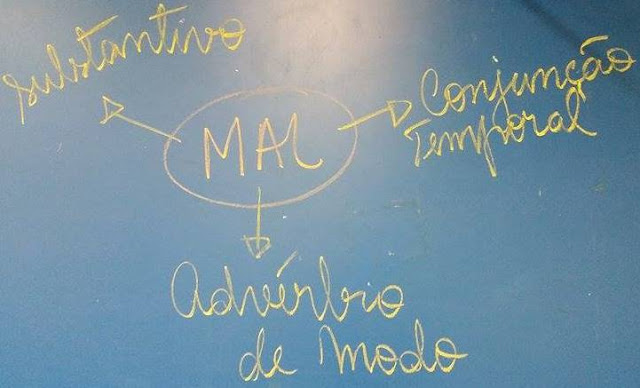 substantivo
MAL
Conjunção
Temporal
Advérbio
de modo